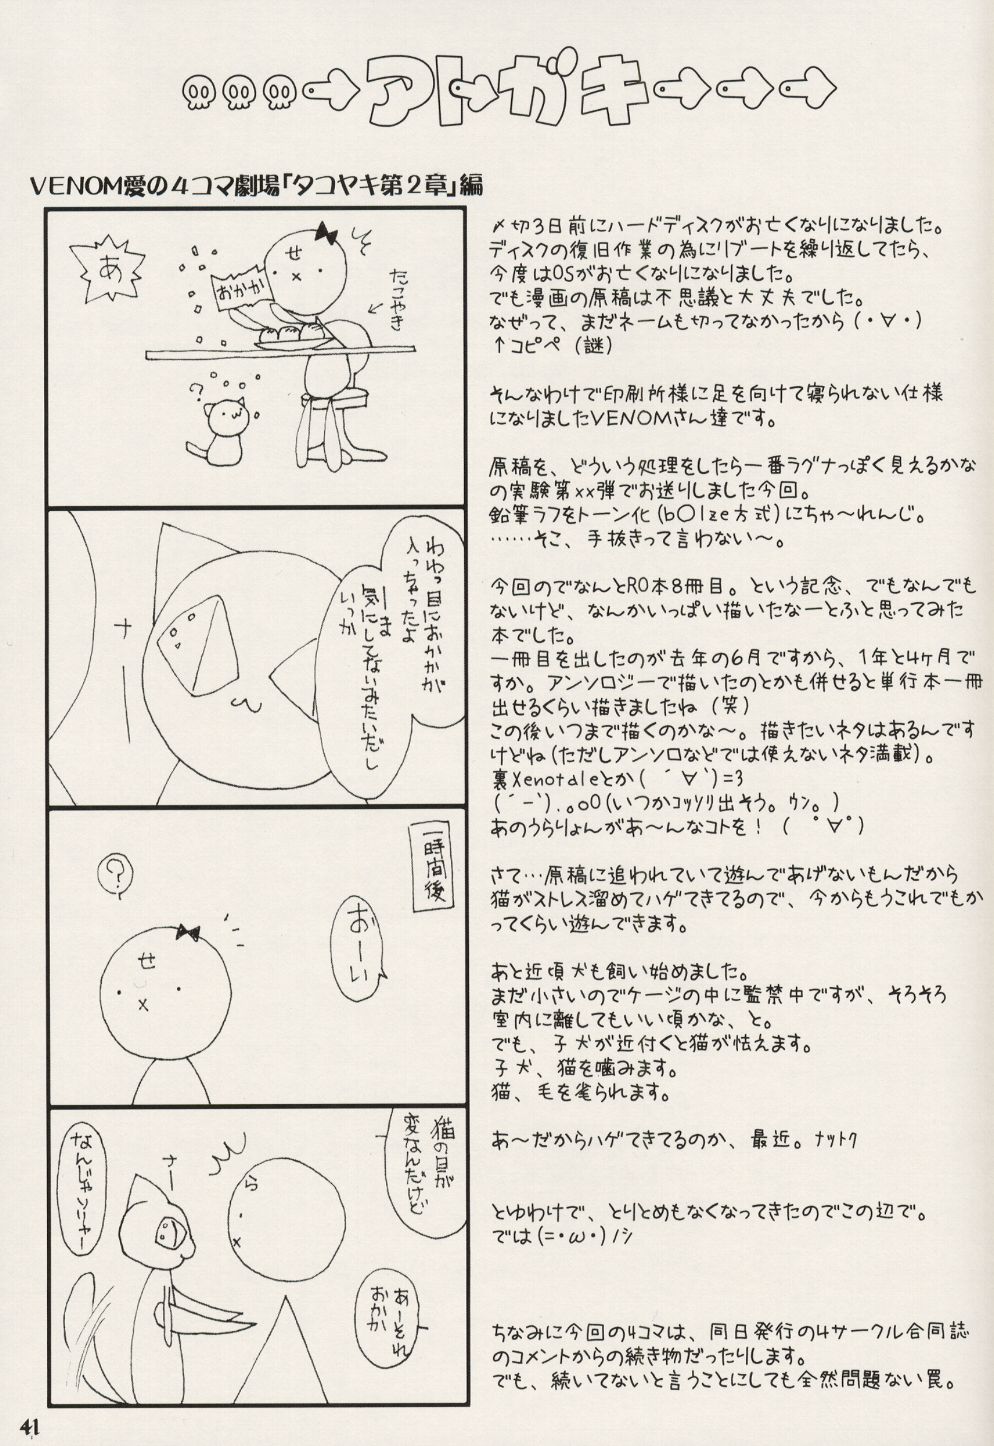 アトガキ
VENOM愛の4コマ劇場「タコヤキ第2章」編
あ
おかか
せ
たこやき
?
わわっ目におかかが
入っちゃったよ
ーま
気にしてないみたいだし
いっか
ナ
一時間後
おーい
?
せ
猫の目が
変なんだけど
ら
ナー
なんじゃソリャー
あーそれ
おかか
〆切3日前にハードディスクがお亡くなりになりました。
ディスクの復旧作業の為にリブートを繰り返してたら、
今度はOSがお亡くなりになりました。
でも漫画の原稿は不思議と大丈夫でした。
なぜって、まだネームも切ってなかったから(・∀・)
↑コピペ(謎)
そんなわけで印刷所様に足を向けて寝られない仕様
になりましたVENOMさん達です。
原稿を、どういう処理をしたら一番ラグナっぽく見えるかな
の実験第xx弾でお送りしました今回。
鉛筆ラフをトーン化(b○lze方式)にちゃ～れんじ。
……そこ、手抜きって言わない～。
今回のでなんとRO本8冊目。という記念、でもなんでも
ないけど、なんかいっぱい描いたなーとふと思ってみた
本でした。
一冊目を出したのが去年の6月ですから、1年と4ヶ月で
すか。アンソロジーで描いたのとかも併せると単行本一冊
出せるくらい描きましたね(笑)
この後いつまで描くのかな～。描きたいネタはあるんです
けどね(ただしアンソロなどでは使えないネタ満載)。
裏Xenotaleとか(´∀`)=3
(´-`).｡oO(いつかｺｯｿﾘ出そう。ｳﾝ。)
あのうらりょんがあ～んなコトを! ( ﾟ∀ﾟ)
さて…原稿に追われていて遊んであげないもんだから
猫がストレス溜めてハゲてきてるので、今からもうこれでもか
ってくらい遊んできます。
あと近頃犬も飼い始めました。
まだ小さいのでケージの中に監禁中ですが、そろそろ
室内に離してもいい頃かな、と。
でも、子犬が近付くと猫が怯えます。
子犬、猫を噛みます。
猫、毛を毟られます。
あ～だからハゲてきてるのか、最近。ﾅｯﾄｸ
とゆわけで、とりとめもなくなってきたのでこの辺で。
では(=・ω・)ﾉｼ
ちなみに今回の4コマは、同日発行の4サークル合同誌
のコメントからの続き物だったりします。
でも、続いてないと言うことにしても全然問題ない罠。
41